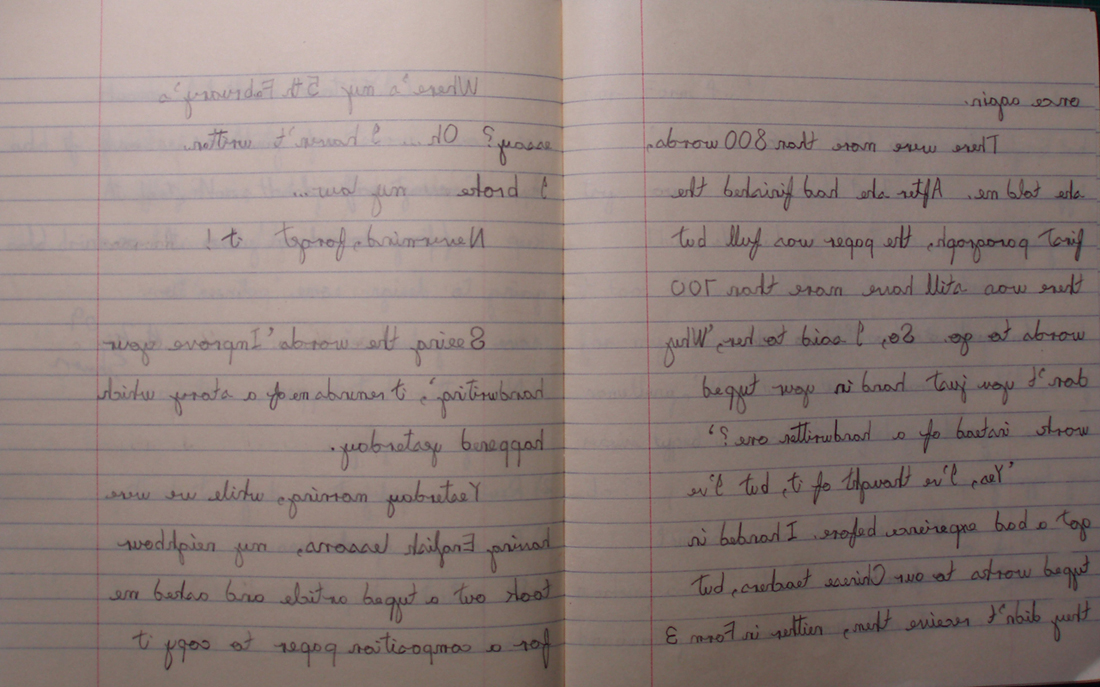 Where's my 5th February's
essay? Oh... I haven't written.
I broke my law...
Nevermind, forget it!
Seeing the words 'Improve your
handwriting', it reminds me of a story which
happened yesterday.
Yesterday morning, while we were
having English lessons, my neighbour
took out a typed article and asked me
for a composition paper to copy it
once again.
There were more than 800 words,
she told me. After she had finished the
first paragraph, the paper was full but
there was still have more than 700
words to go. So, I said to her, 'Why
don't you just hand in your typed
work instead of a handwritten one?'
'Yes, I've thought of it, but I've
got a bad experience before. I handed in
typed works to our Chinese teachers, but
they didn't receive them, neither in Form 3